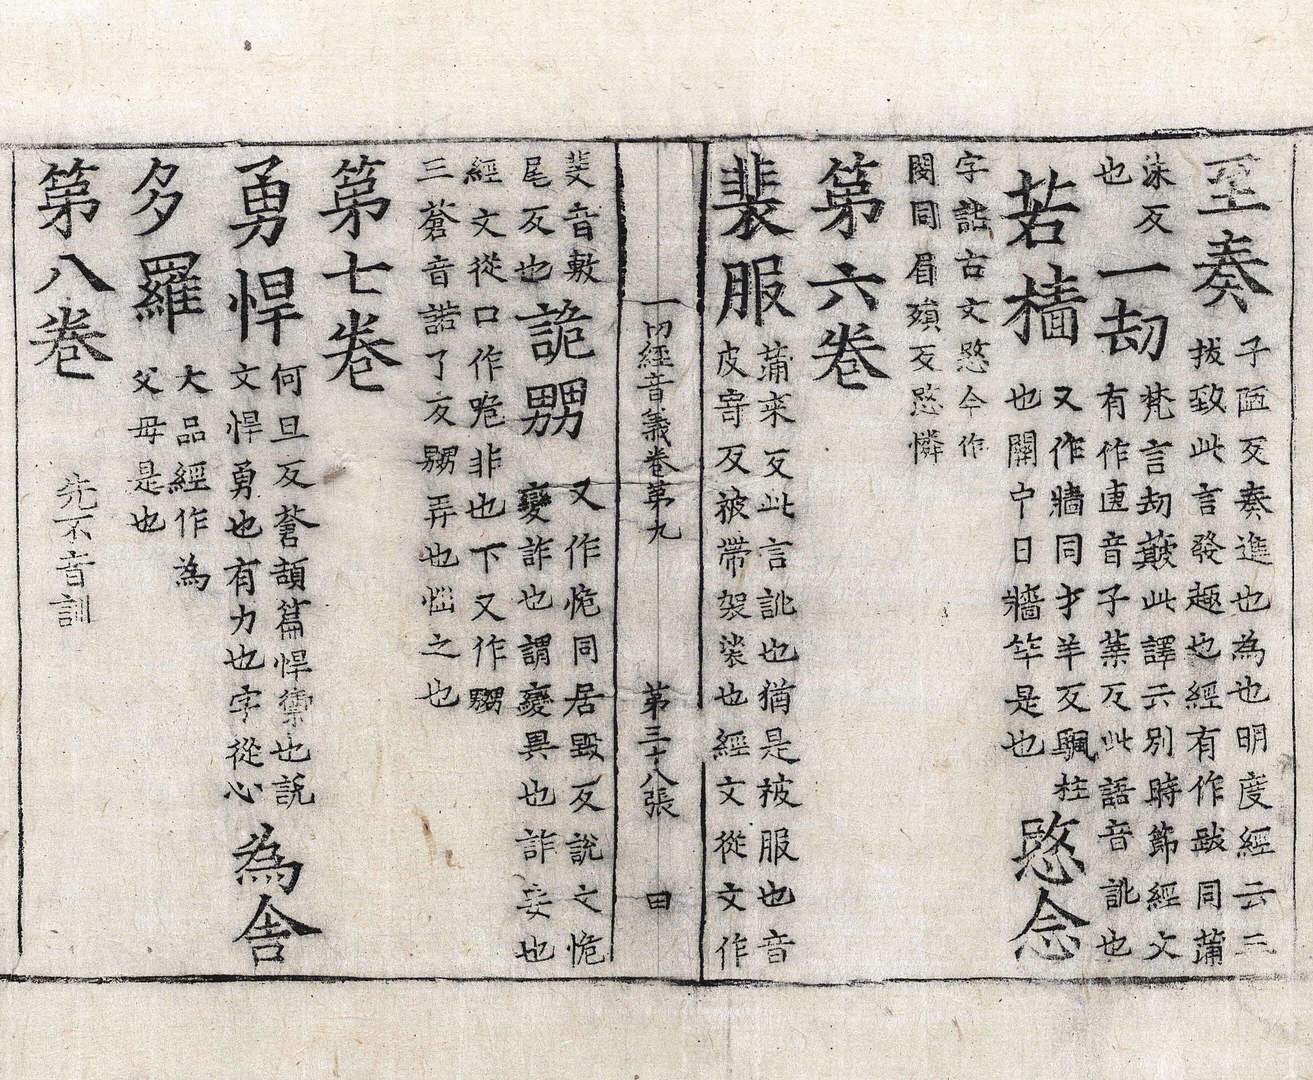 至奏子陋反奏進也為也明度經云三
拔致此言發趣也經有作䟦同蒲
沬反
也一劫梵言劫簸此譯云別時節經文
有作㤜音子葉反此語音訛也
若樯又作牆同才羊反颿柱
也關中日牆竿是也愍念
字詁古文愍今作
閔同眉殞反愍憐
第六卷
裴服蒲來反此言訛也猶是被服也音
皮寄反被帶袈裟也經文從文作
一切經音義卷第九 第三十八張 田
斐音敷
尾反也詭嬲又作恑同居毀反說文恑
變詐也謂變異也詐妄也
經文從口作咜非也下又作嬲
三蒼音諾了反嬲弄也惱之也
第七卷
勇悍何旦反蒼頡篇悍禦也說
文悍勇也有力也字從心為舍
多羅大品經作為
父母是也
第八卷先不音訓